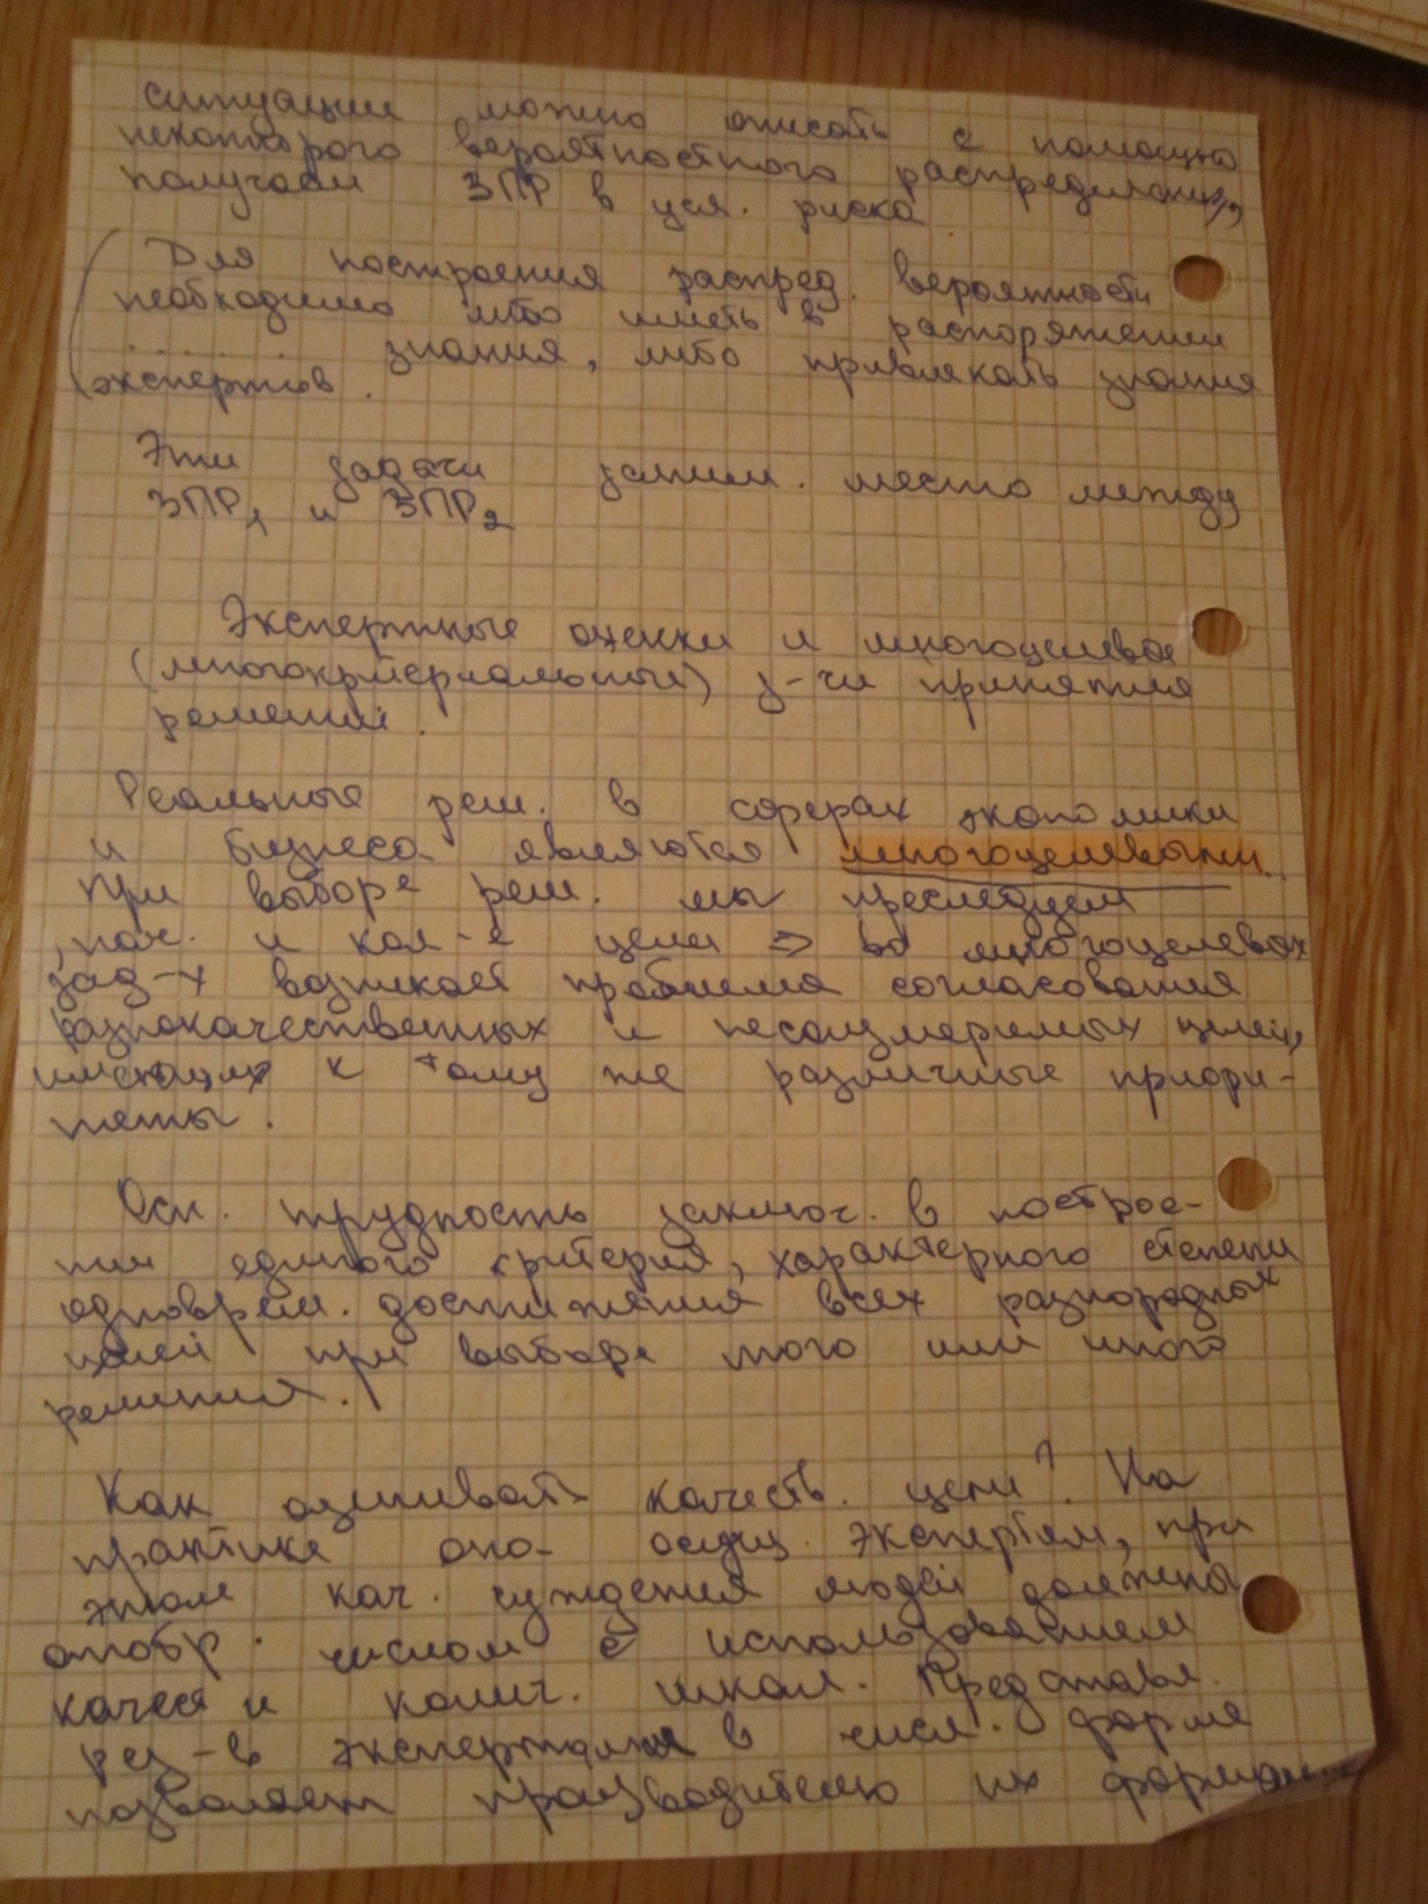 ситуации можно описать с помощью
некоторого вероятностного распределения,
получаем ЗПР в усл. риска
Для построения распред. вероятности
необходимо либо иметь в распоряжении
. . . . . . . знания, либо привлекать знания
экспертов.
Эти задачи заним. место между
ЗПР₁ и ЗПР₂
Экспертные оценки и многоцелевые
(многокритериальные) з-чи принятия
решений.
Реальные реш. в сферах экономики
и бизнеса являются многоцелевыми.
При выборе реш. мы преследуем
кач. и кол-е цели ⇒ во многоцелевых
зад-х возникает проблема согласования
разнокачественных и несоизмеримых целей,
имеющих к тому же различные приори-
теты.
Осн. трудность заключ. в построе-
нии единого критерия, характерного степени
одноврем. достижения всех разнородных
целей при выборе того или иного
решения.
Как оценивать качеств. цели? На
практике это осущ. экспертам, при
этом кач. суждения людей должны
отобр. числом с использованием
качеств и колич. шкал. Представл.
рез-в экспертами в числ. форме
позволяет производителю их